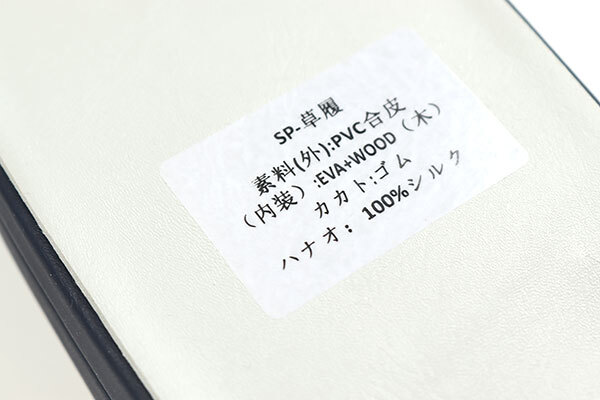 SP-草履
素料(外):PVC合皮
（内装）:EVA+WOOD（木）
カカト:ゴム
ハナオ：100%シルク